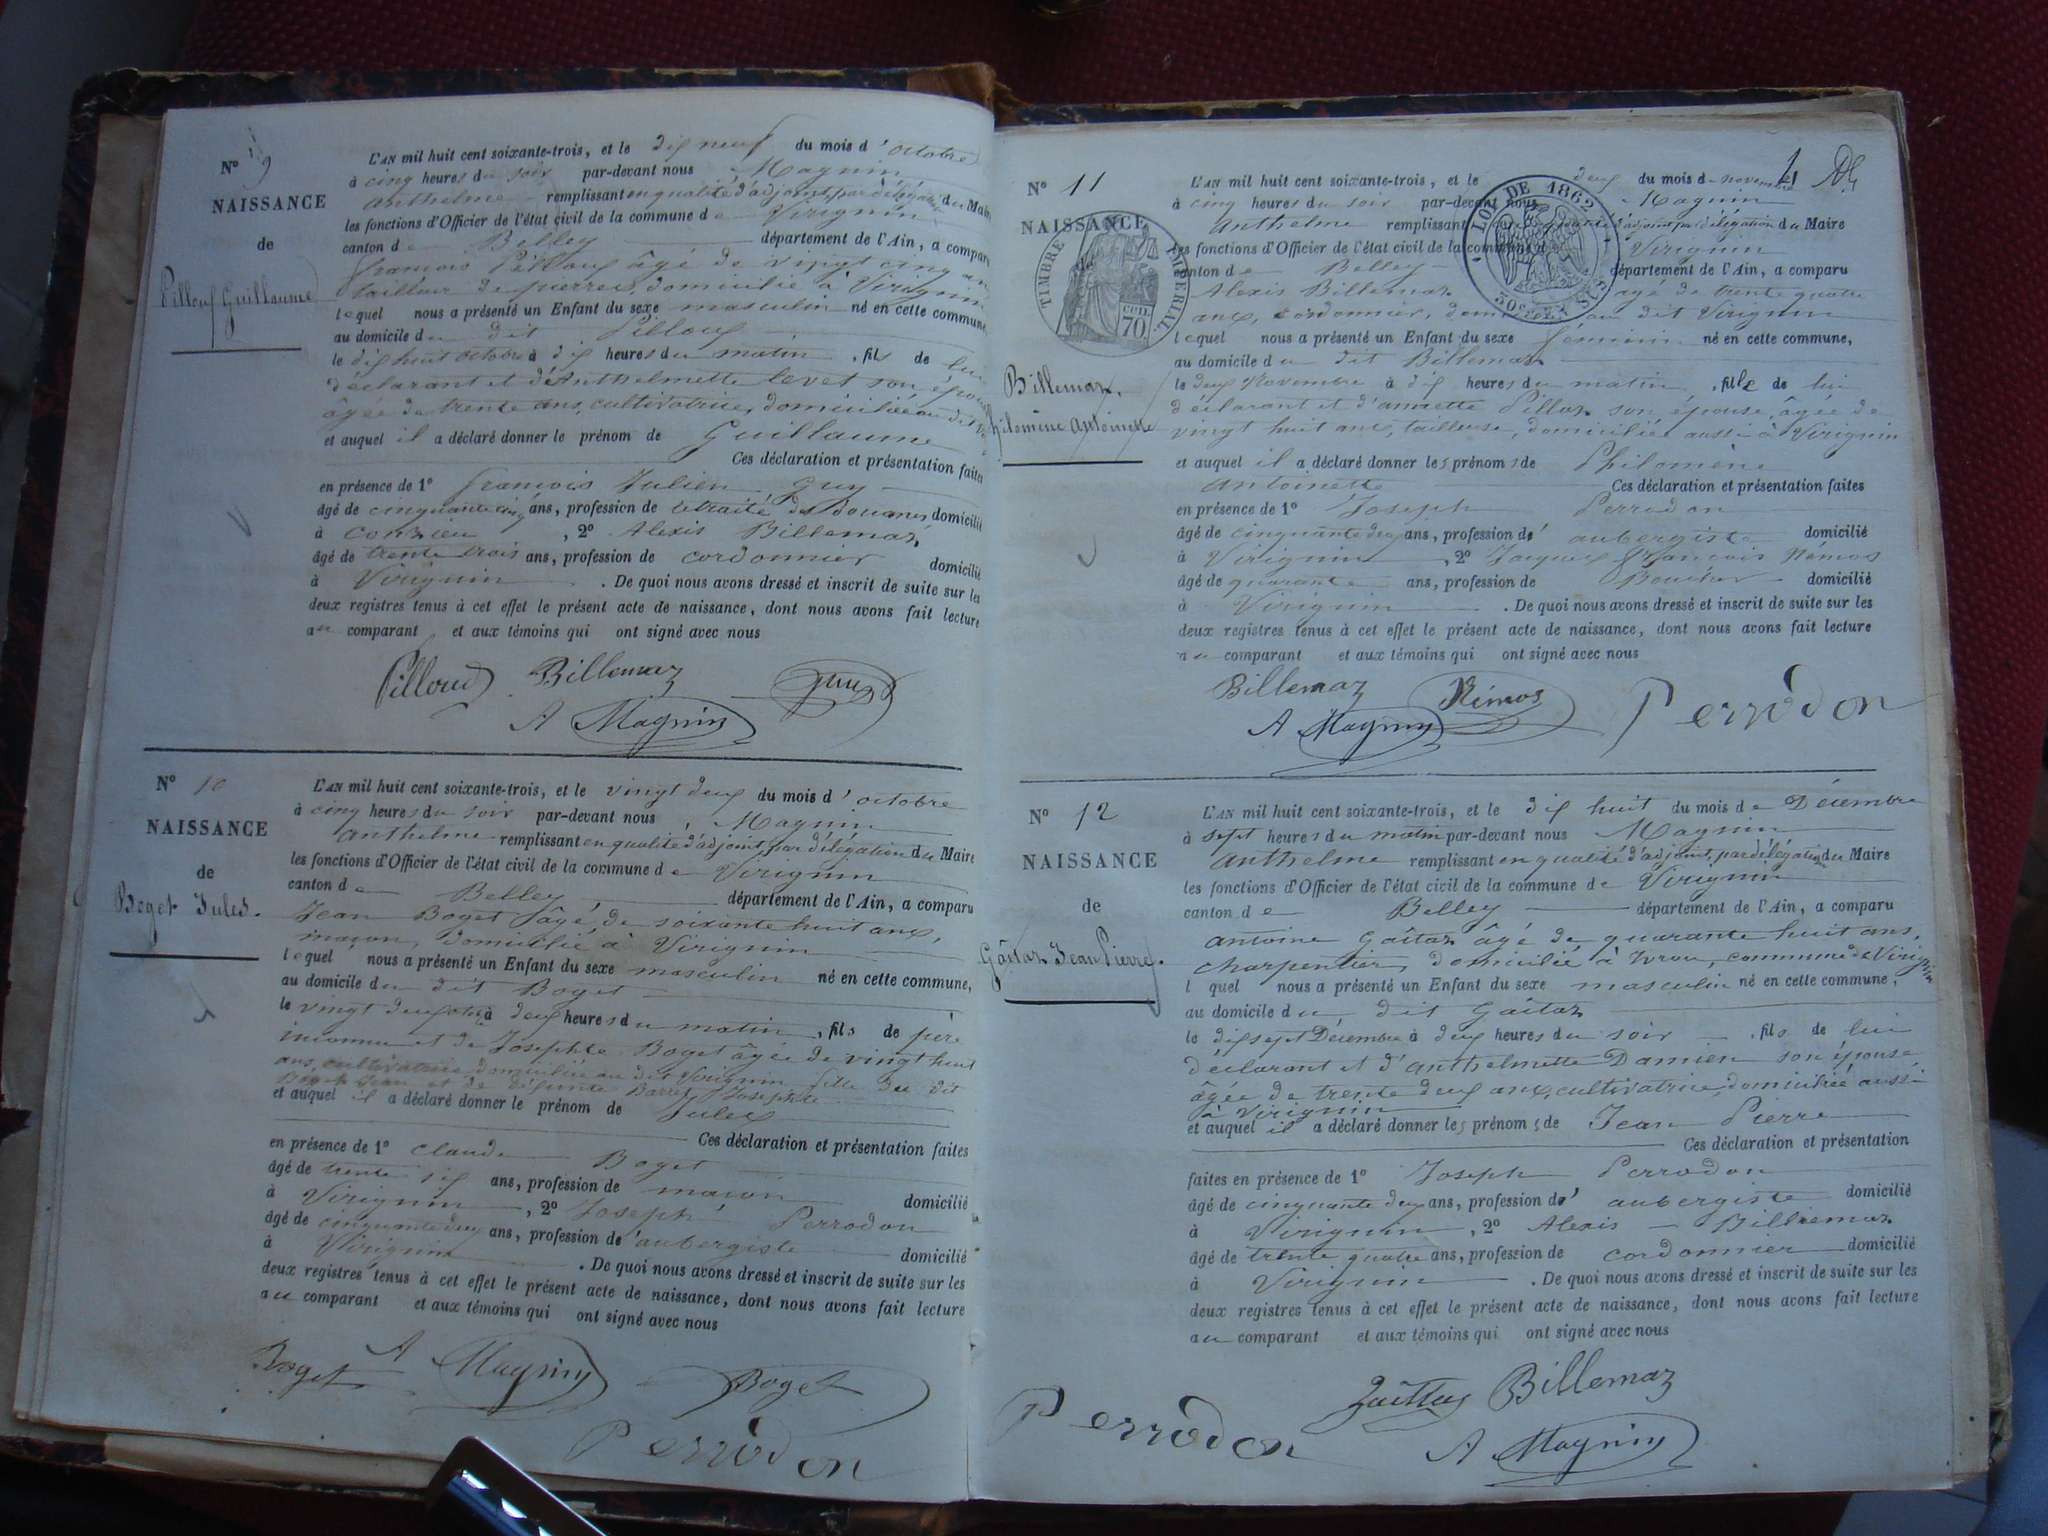 N° 9
NAISSANCE
de
Pilloux Guillaume
L'AN mil huit cent soixante-trois, et le dix neuf du mois d'octobre
à cinq heures du soir par-devant nous Magnin
Anthelme remplissant en qualité d'adjoint, par délégation du Maire
les fonctions d'Officier de l'état civil de la commune de Virignin
canton de Belley département de l'Ain, a comparu
françois Pilloux âgé de vingt cinq ans
tailleur de pierres, domicilié à Virignin
lequel nous a présenté un Enfant du sexe masculin né en cette commune,
au domicile du dit Pilloux
le dix huit octobre à dix heures du matin, fils de lui
déclarant et d'Anthelmette Levet son épouse
âgée de trente ans, cultivatrice, domiciliée au dit
et auquel il a déclaré donner le prénom de Guillaume
Ces déclaration et présentation faites
en présence de 1° françois Julien Guy
âgé de cinquante cinq ans, profession de retraité des douanes domicilié
à Conzieu, 2° Alexis Billemaz
âgé de trente trois ans, profession de cordonnier domicilié
à Virignin. De quoi nous avons dressé et inscrit de suite sur les
deux registres tenus à cet effet le présent acte de naissance, dont nous avons fait lecture
au comparant et aux témoins qui ont signé avec nous
Pilloud Billemaz
A Magnin
N° 10
NAISSANCE
de
Boget Jules.
L'AN mil huit cent soixante-trois, et le vingt deux du mois d'octobre
à cinq heures du soir par-devant nous, Magnin
Anthelme remplissant en qualité d'adjoint, par délégation du Maire
les fonctions d'Officier de l'état civil de la commune de Virignin
canton de Belley département de l'Ain, a comparu
Jean Boget âgé de soixante huit ans,
maçon, domicilié à Virignin
lequel nous a présenté un Enfant du sexe masculin né en cette commune,
au domicile du dit Boget
le vingt deux octobre à deux heures du matin, fils de père
inconnu et de Josephte Boget âgée de vingt huit
ans, cultivatrice, domiciliée au dit Virignin, fille du dit
Boget Jean et de défunte Barret Josephte
et auquel il a déclaré donner le prénom de Jules
Ces déclaration et présentation faites
en présence de 1° Claude Boget
âgé de trente six ans, profession de maçon domicilié
à Virignin, 2° Joseph Perrodon
âgé de cinquante deux ans, profession d'aubergiste domicilié
à Virignin. De quoi nous avons dressé et inscrit de suite sur les
deux registres tenus à cet effet le présent acte de naissance, dont nous avons fait lecture
au comparant et aux témoins qui ont signé avec nous
Boget A Magnin Boget
Perrodon
N° 11
NAISSANCE
TIMBRE IMPERIAL
CEN.
70
Billemaz
Philomène Antoinette
LOI DE 1862
L'AN mil huit cent soixante-trois, et le deux du mois de novembre
à cinq heures du soir par-devant nous Magnin
Anthelme remplissant en qualité d'adjoint par délégation du Maire
les fonctions d'Officier de l'état civil de la commune de Virignin
canton de Belley département de l'Ain, a comparu
Alexis Billemaz âgé de trente quatre
ans, cordonnier, domicilié au dit Virignin
lequel nous a présenté un Enfant du sexe féminin né en cette commune,
au domicile du dit Billemaz
le deux Novembre à dix heures du matin, fille de lui
déclarant et d'annette Pilloz son épouse, âgée de
vingt huit ans, tailleuse, domiciliée aussi à Virignin
et auquel il a déclaré donner les prénoms de Philomène
Antoinette Ces déclaration et présentation faites
en présence de 1° Joseph Perrodon
âgé de cinquante deux ans, profession d'aubergiste domicilié
à Virignin, 2° Jacques François Némos
âgé de quarante ans, profession de Boucher domicilié
à Virignin. De quoi nous avons dressé et inscrit de suite sur les
deux registres tenus à cet effet le présent acte de naissance, dont nous avons fait lecture
au comparant et aux témoins qui ont signé avec nous
Billemaz Némos Perrodon
A Magnin
N° 12
NAISSANCE
de
Gaîtaz Jean Pierre.
L'AN mil huit cent soixante-trois, et le dix huit du mois de Décembre
à sept heures du matin par-devant nous Magnin
Anthelme remplissant en qualité d'adjoint, par délégation du Maire
les fonctions d'Officier de l'état civil de la commune de Virignin
canton de Belley département de l'Ain, a comparu
Antoine Gaîtaz âgé de quarante huit ans,
charpentier, domicilié à Ivrou, commune de Virignin
lequel nous a présenté un Enfant du sexe masculin né en cette commune,
au domicile du dit Gaîtaz
le dix sept Décembre à deux heures du soir, fils de lui
déclarant et d'Anthelmette Damien son épouse
âgée de trente deux ans, cultivatrice, domiciliée aussi
à Virignin
et auquel il a déclaré donner les prénoms de Jean Pierre
Ces déclaration et présentation
faites en présence de 1° Joseph Perrodon
âgé de cinquante deux ans, profession d'aubergiste domicilié
à Virignin, 2° Alexis Billiemaz
âgé de trente quatre ans, profession de cordonnier domicilié
à Virignin. De quoi nous avons dressé et inscrit de suite sur les
deux registres tenus à cet effet le présent acte de naissance, dont nous avons fait lecture
au comparant et aux témoins qui ont signé avec nous
Perrodon Gaittaz Billemaz
A Magnin